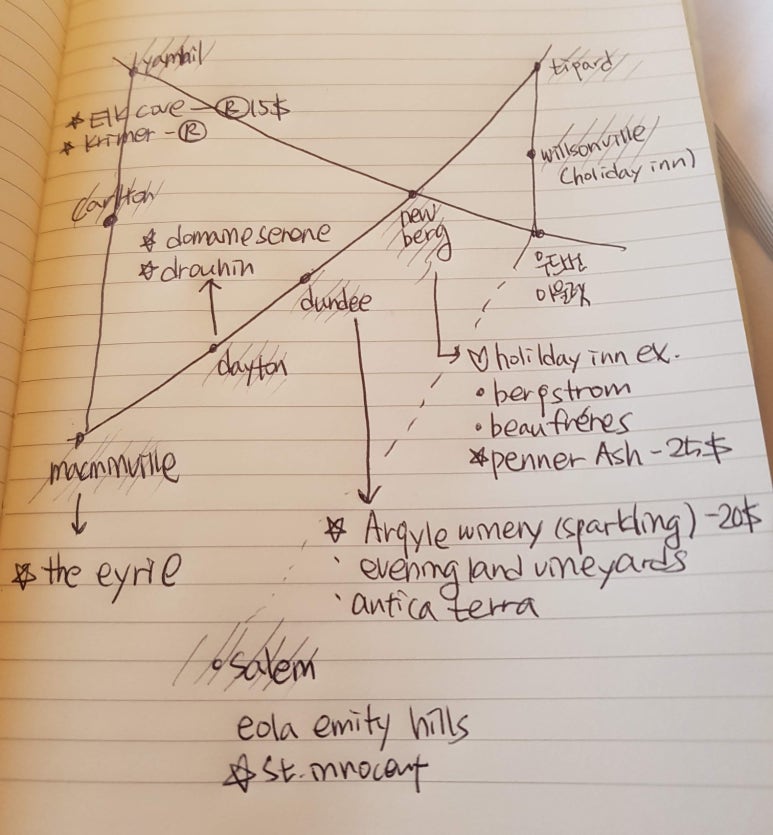 yamhil
tipard
★ Elk cove - Ⓡ 15$
★ krimer - Ⓡ
willsonville
(holiday inn)
carlton
new
berg
★ domaine serene
★ drouhin
우드번
아울렛
dundee
dayton
♡ holilday inn ex.
• bergstrom
• beaufréres
★ penner Ash - 25$
macmnville
★ Argyle winery (sparkling) - 20$
• evening land vineyards
• antica terra
★ the eyrie
• salem
eola emity hills
★ st. innocent